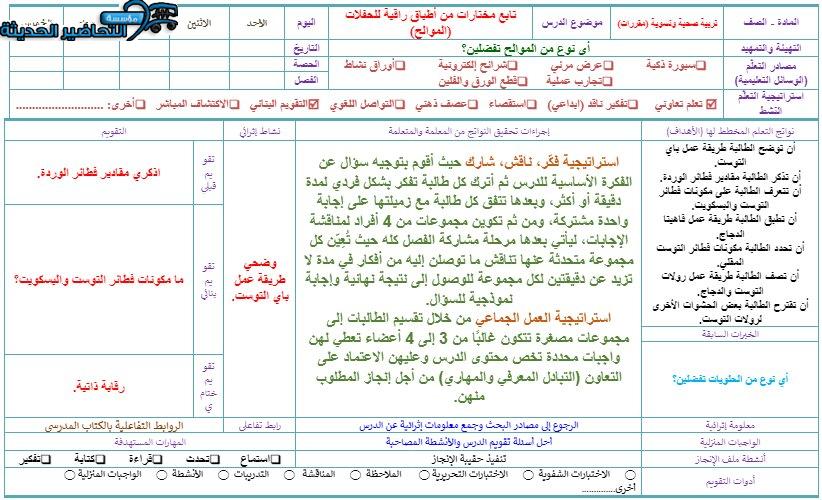 المادة - الصف
تربية صحية ونسوية (مقررات)
موضوع الدرس
تابع مختارات من أطباق راقية للحفلات
(الموالح)
اليوم
الأحد
الاثنين
مؤسسة
التحاضير الحديثة
التهيئة والتمهيد
أي نوع من الموالح تفضلين؟
التاريخ
مصادر التعلّم
(الوسائل التعليمية)
❑سبورة ذكية ❑عرض مرئي ❑شرائح إلكترونية ❑أوراق نشاط
❑تجارب عملية ❑قطع الورق والفلين
الحصة
الفصل
استراتيجية التعلّم
النشط
☑تعلم تعاوني ❑تفكير ناقد (ابداعي) ❑استقصاء ❑عصف ذهني ❑التواصل اللغوي ☑التقويم البنائي ❑الاكتشاف المباشر ❑أخرى: ......................
نواتج التعلم المخطط لها (الأهداف)
إجراءات تحقيق النواتج من المعلمة والمتعلمة
نشاط إثرائي
التقويم
أن توضح الطالبة طريقة عمل باي
التوست.
أن تذكر الطالبة مقادير فطائر الوردة.
أن تتعرف الطالبة على مكونات فطائر
التوست والبسكويت.
أن تطبق الطالبة طريقة عمل فاهيتا
الدجاج.
أن تحدد الطالبة مكونات فطائر التوست
المقلي.
أن تصف الطالبة طريقة عمل رولات
التوست والدجاج.
أن تقترح الطالبة بعض الحشوات الأخرى
لرولات التوست.
الخبرات السابقة
أي نوع من الحلويات تفضلين؟
استراتيجية فكّر، ناقش، شارك حيث أقوم بتوجيه سؤال عن
الفكرة الأساسية للدرس ثم أترك كل طالبة تفكر بشكل فردي لمدة
دقيقة أو أكثر، وبعدها تتفق كل طالبة مع زميلتها على إجابة
واحدة مشتركة، ومن ثم تكوين مجموعات من 4 أفراد لمناقشة
الإجابات، ليأتي بعدها مرحلة مشاركة الفصل كله حيث تُعيّن كل
مجموعة متحدثة عنها تناقش ما توصلن إليه من أفكار في مدة لا
تزيد عن دقيقتين لكل مجموعة للوصول إلى نتيجة نهائية وإجابة
نموذجية للسؤال.
استراتيجية العمل الجماعي من خلال تقسيم الطالبات إلى
مجموعات مصغرة تتكون غالبًا من 3 إلى 4 أعضاء تعطي لهن
واجبات محددة تخص محتوى الدرس وعليهن الاعتماد على
التعاون (التبادل المعرفي والمهاري) من أجل إنجاز المطلوب
منهن.
وضحي
طريقة عمل
باي التوست.
تقو
يم
قبلي
اذكري مقادير فطائر الوردة.
تقو
يم
بنائي
ما مكونات فطائر التوست والبسكويت؟
تقو
يم
ختام
ي
رقابة ذاتية.
معلومة إثرائية
الرجوع إلى مصادر البحث وجمع معلومات إثرائية عن الدرس
رابط تفاعلي
الروابط التفاعلية بالكتاب المدرسي
الواجبات المنزلية
أحل أسئلة تقويم الدرس والأنشطة المصاحبة
المهارات المستهدفة
أنشطة ملف الإنجاز
تنفيذ حقيبة الإنجاز
❑استماع ❑تحدث ❑قراءة ❑كتابة ❑تفكير
أدوات التقويم
○ الاختبارات الشفوية ○ الاختبارات التحريرية ○ الملاحظة ○ المناقشة ○ التدريبات ○ الأنشطة ○ الواجبات المنزلية ○
أخرى..............